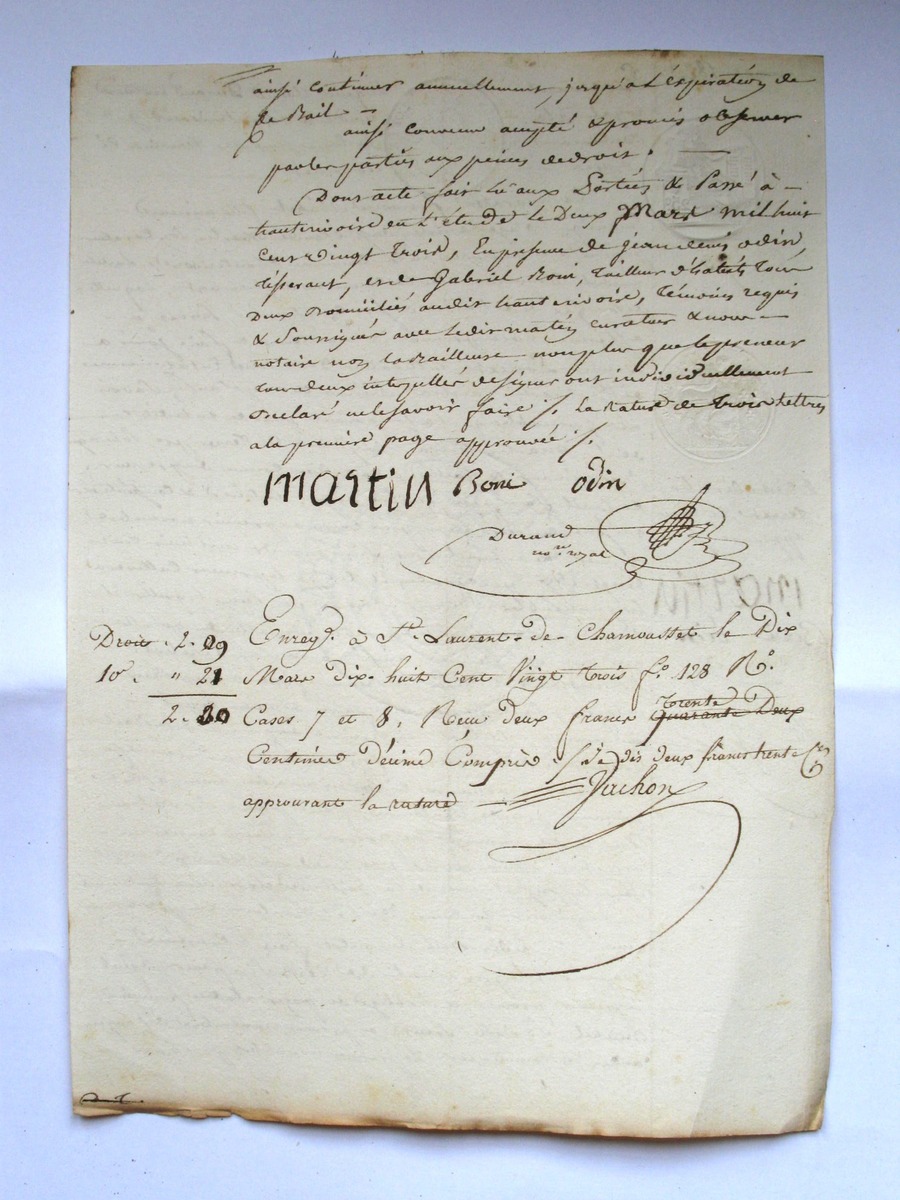 ainsi continuer annuellement, jusqu'a l'expiration de
ce Bail —
ainsi convenu accepté & promis observer
par les parties aux peines de droit. —
Dont acte fait lu aux Parties & Passé à —
hauterivoire en l'étude le Deux Mars mil huit
Cent vingt trois, En presence de jean denis odin,
tisserant, et de Gabriel Boni, tailleur d'habits tous
Deux Domiciliés audit hauterivoire, témoins requis
& Soussignés avec ledit martin curateur & nous —
notaire non la Bailleuse non plus que le preneur
tous deux interpellés de signer ont individuellement
Déclaré ne le savoir faire ./. La rature de trois lettres
a la premiere page approuvée ./.
martin Boni odin
Durand
nore. royal
martin
Enregé. à St. Laurent-de-Chamousset le Dix
Droits . 2 . 09
Mars dix-huit Cent Vingt trois fo. 128 Ro.
10e. " 21
2. 30
Cases 7 et 8, Recu deux francs Quarante Deux trente
Centimes décime Compris / Je dis deux francs trente Ces
approuvant la rature — Vachon